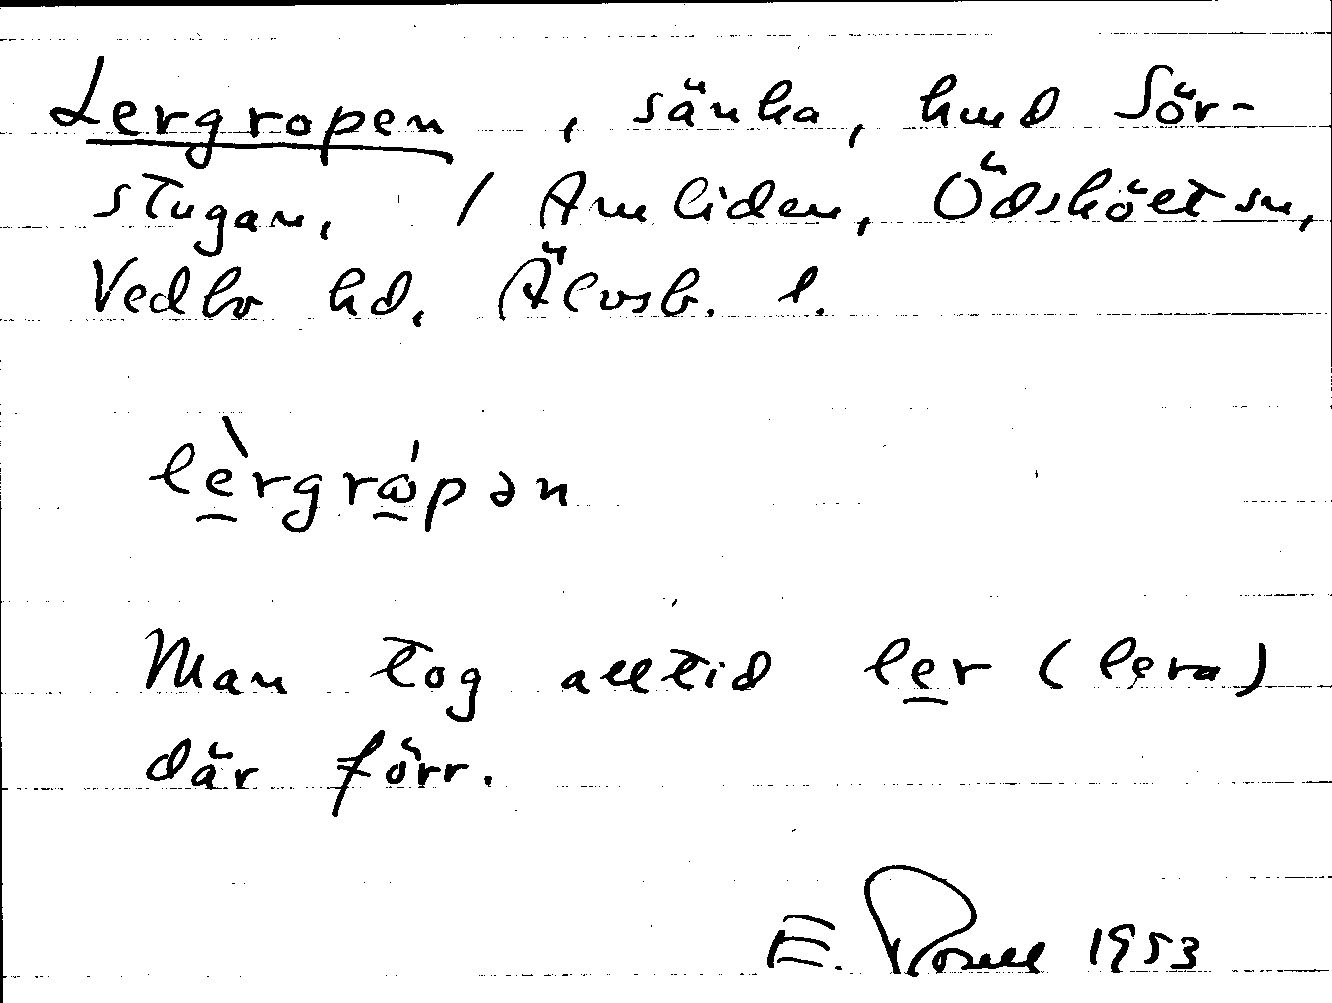 Lergropen, sänka, hmd Sör-
stugan, / Amliden, Ödsköлt sn,
Vedbo hd, Älvsb. l.
lèrgrɷ́pən
Man tog alltid ler (lera)
där förr.
E. Rosell 1953